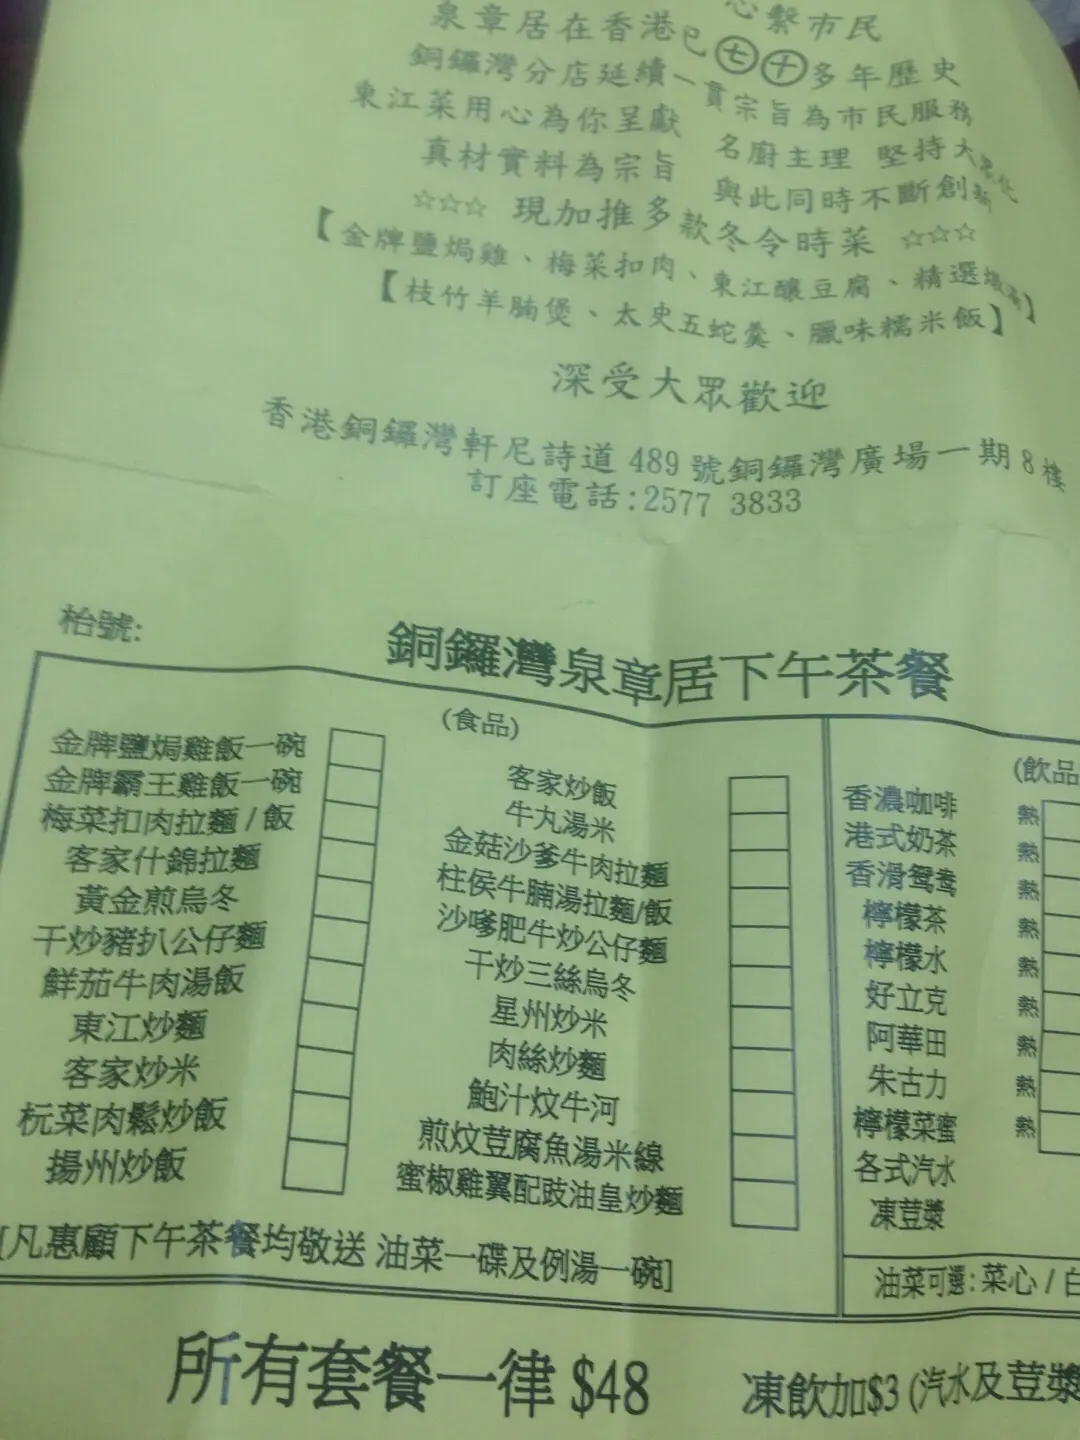 心繫市民
泉章居在香港已七十多年歷史
銅鑼灣分店延續一貫宗旨為市民服務
東江菜用心為你呈獻 名廚主理 堅持大眾化
真材實料為宗旨 與此同時不斷創新
☆☆☆ 現加推多款冬令時菜 ☆☆☆
【金牌鹽焗雞、梅菜扣肉、東江釀豆腐、精選燉湯】
【枝竹羊腩煲、太史五蛇羹、臘味糯米飯】
深受大眾歡迎
香港銅鑼灣軒尼詩道 489 號銅鑼灣廣場一期 8 樓
訂座電話:2577 3833
枱號:
銅鑼灣泉章居下午茶餐
(食品)
金牌鹽焗雞飯一碗
金牌霸王雞飯一碗
梅菜扣肉拉麵 / 飯
客家什錦拉麵
黃金煎烏冬
干炒豬扒公仔麵
鮮茄牛肉湯飯
東江炒麵
客家炒米
杬菜肉鬆炒飯
揚州炒飯
客家炒飯
牛丸湯米
金菇沙爹牛肉拉麵
柱侯牛腩湯拉麵/飯
沙嗲肥牛炒公仔麵
干炒三絲烏冬
星州炒米
肉絲炒麵
鮑汁炆牛河
煎炆荳腐魚湯米線
蜜椒雞翼配豉油皇炒麵
(飲品
香濃咖啡 熱
港式奶茶 熱
香滑鴛鴦 熱
檸檬茶 熱
檸檬水 熱
好立克 熱
阿華田 熱
朱古力 熱
檸檬菜蜜 熱
各式汽水
凍荳漿
[凡惠顧下午茶餐均敬送 油菜一碟及例湯一碗]
油菜可選: 菜心 / 白
所有套餐一律 $48
凍飲加$3 (汽水及荳漿